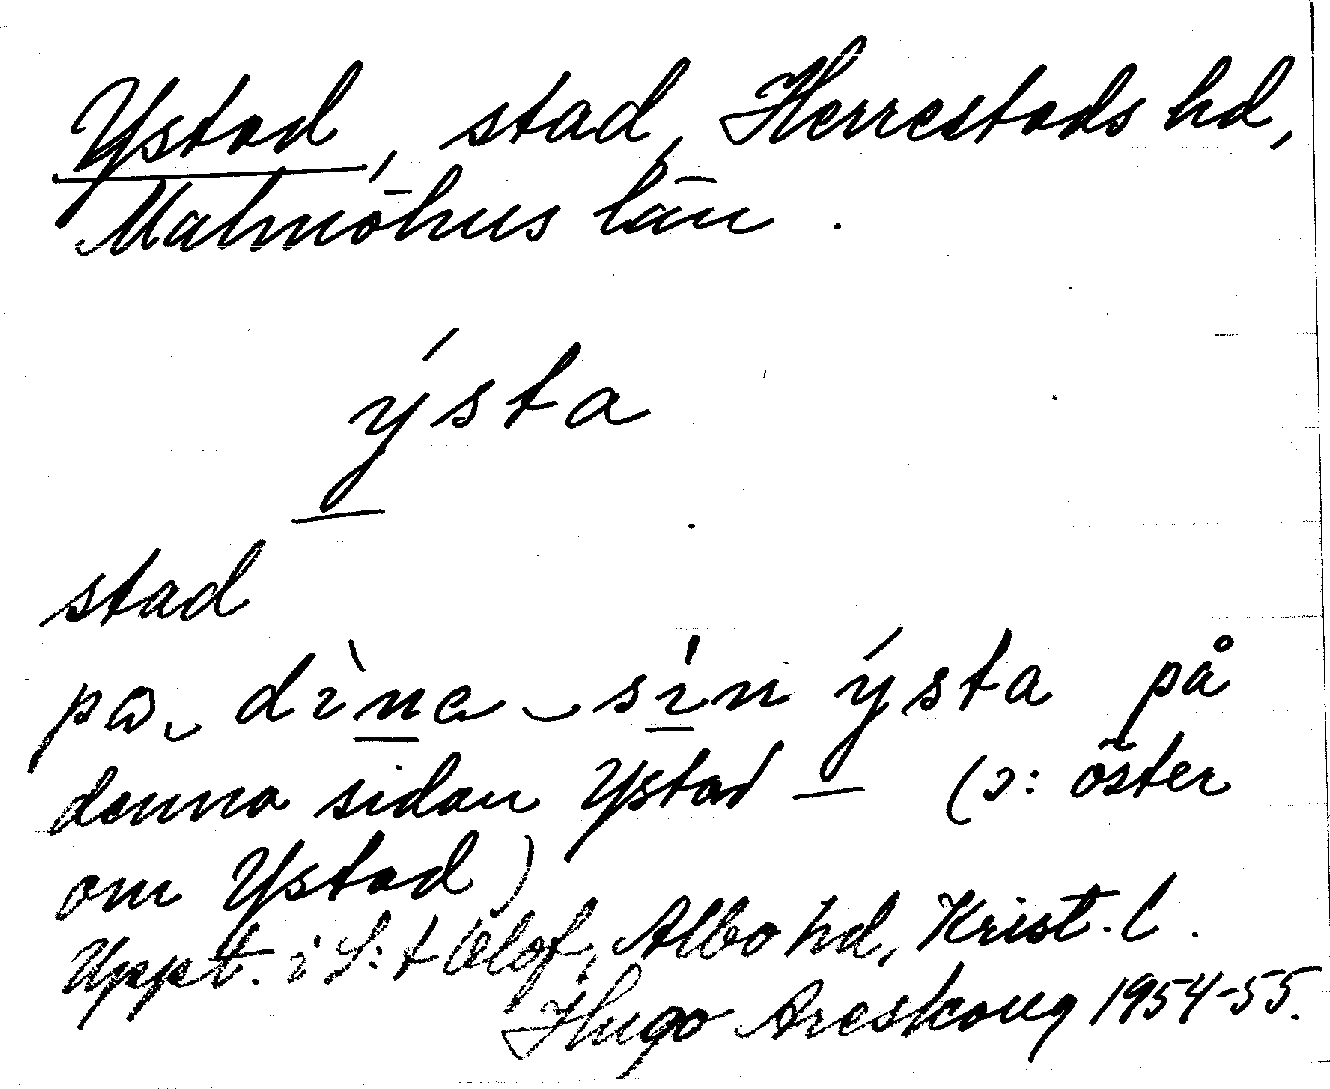 Ystad, stad, Herrestads hd,
Malmöhus län.
ýsta
stad
pɷ dìna sín ýsta på
denna sidan Ystad – (ɔ: öster
om Ystad)
Uppt. i S:t Olof, Albo hd, Krist. l.
Hugo Areskoug 1954-55.